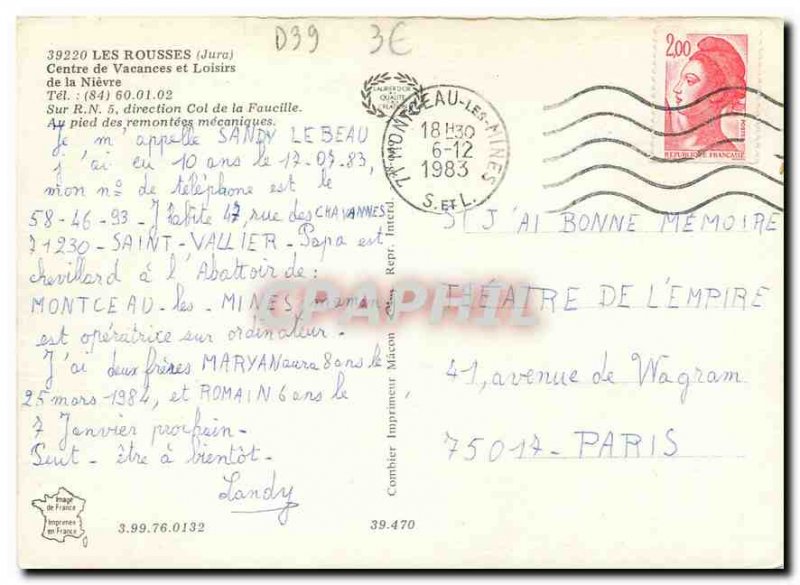 D39 3€
39220 LES ROUSSES (Jura)
Centre de Vacances et Loisirs
de la Nièvre
Tél. : (84) 60.01.02
Sur R.N. 5, direction Col de la Faucille.
Au pied des remontées mécaniques.
Je m'appelle SANDY LEBEAU
j'ai eu 10 ans le 17-07-83,
mon no de téléphone est le
58-46-93-J'habite 47, rue des CHAVANNES
71230-SAINT-VALLIER-Papa est
chevillard à l'Abattoir de :
MONTCEAU-les-MINES, maman
est opératrice sur ordinateur-
J'ai deux frères MARYAN aura 8 ans le
25 mars 1984, et ROMAIN 6 ans le
7 Janvier prochain-
Peut-être à bientôt-
Sandy
Image
de France
Imprimée
en France
3.99.76.0132
39.470
Combier Imprimeur Mâcon Repr. Interd.
QUALITE
71 MONTCEAU-LES-MINES
18 H30
6-12
1983
S. ET L.
2,00
POSTES
REPUBLIQUE FRANÇAISE
SI J'AI BONNE MÉMOIRE
THÉATRE DE L'EMPIRE
41, avenue de Wagram
75017-PARIS
CPAPHIL